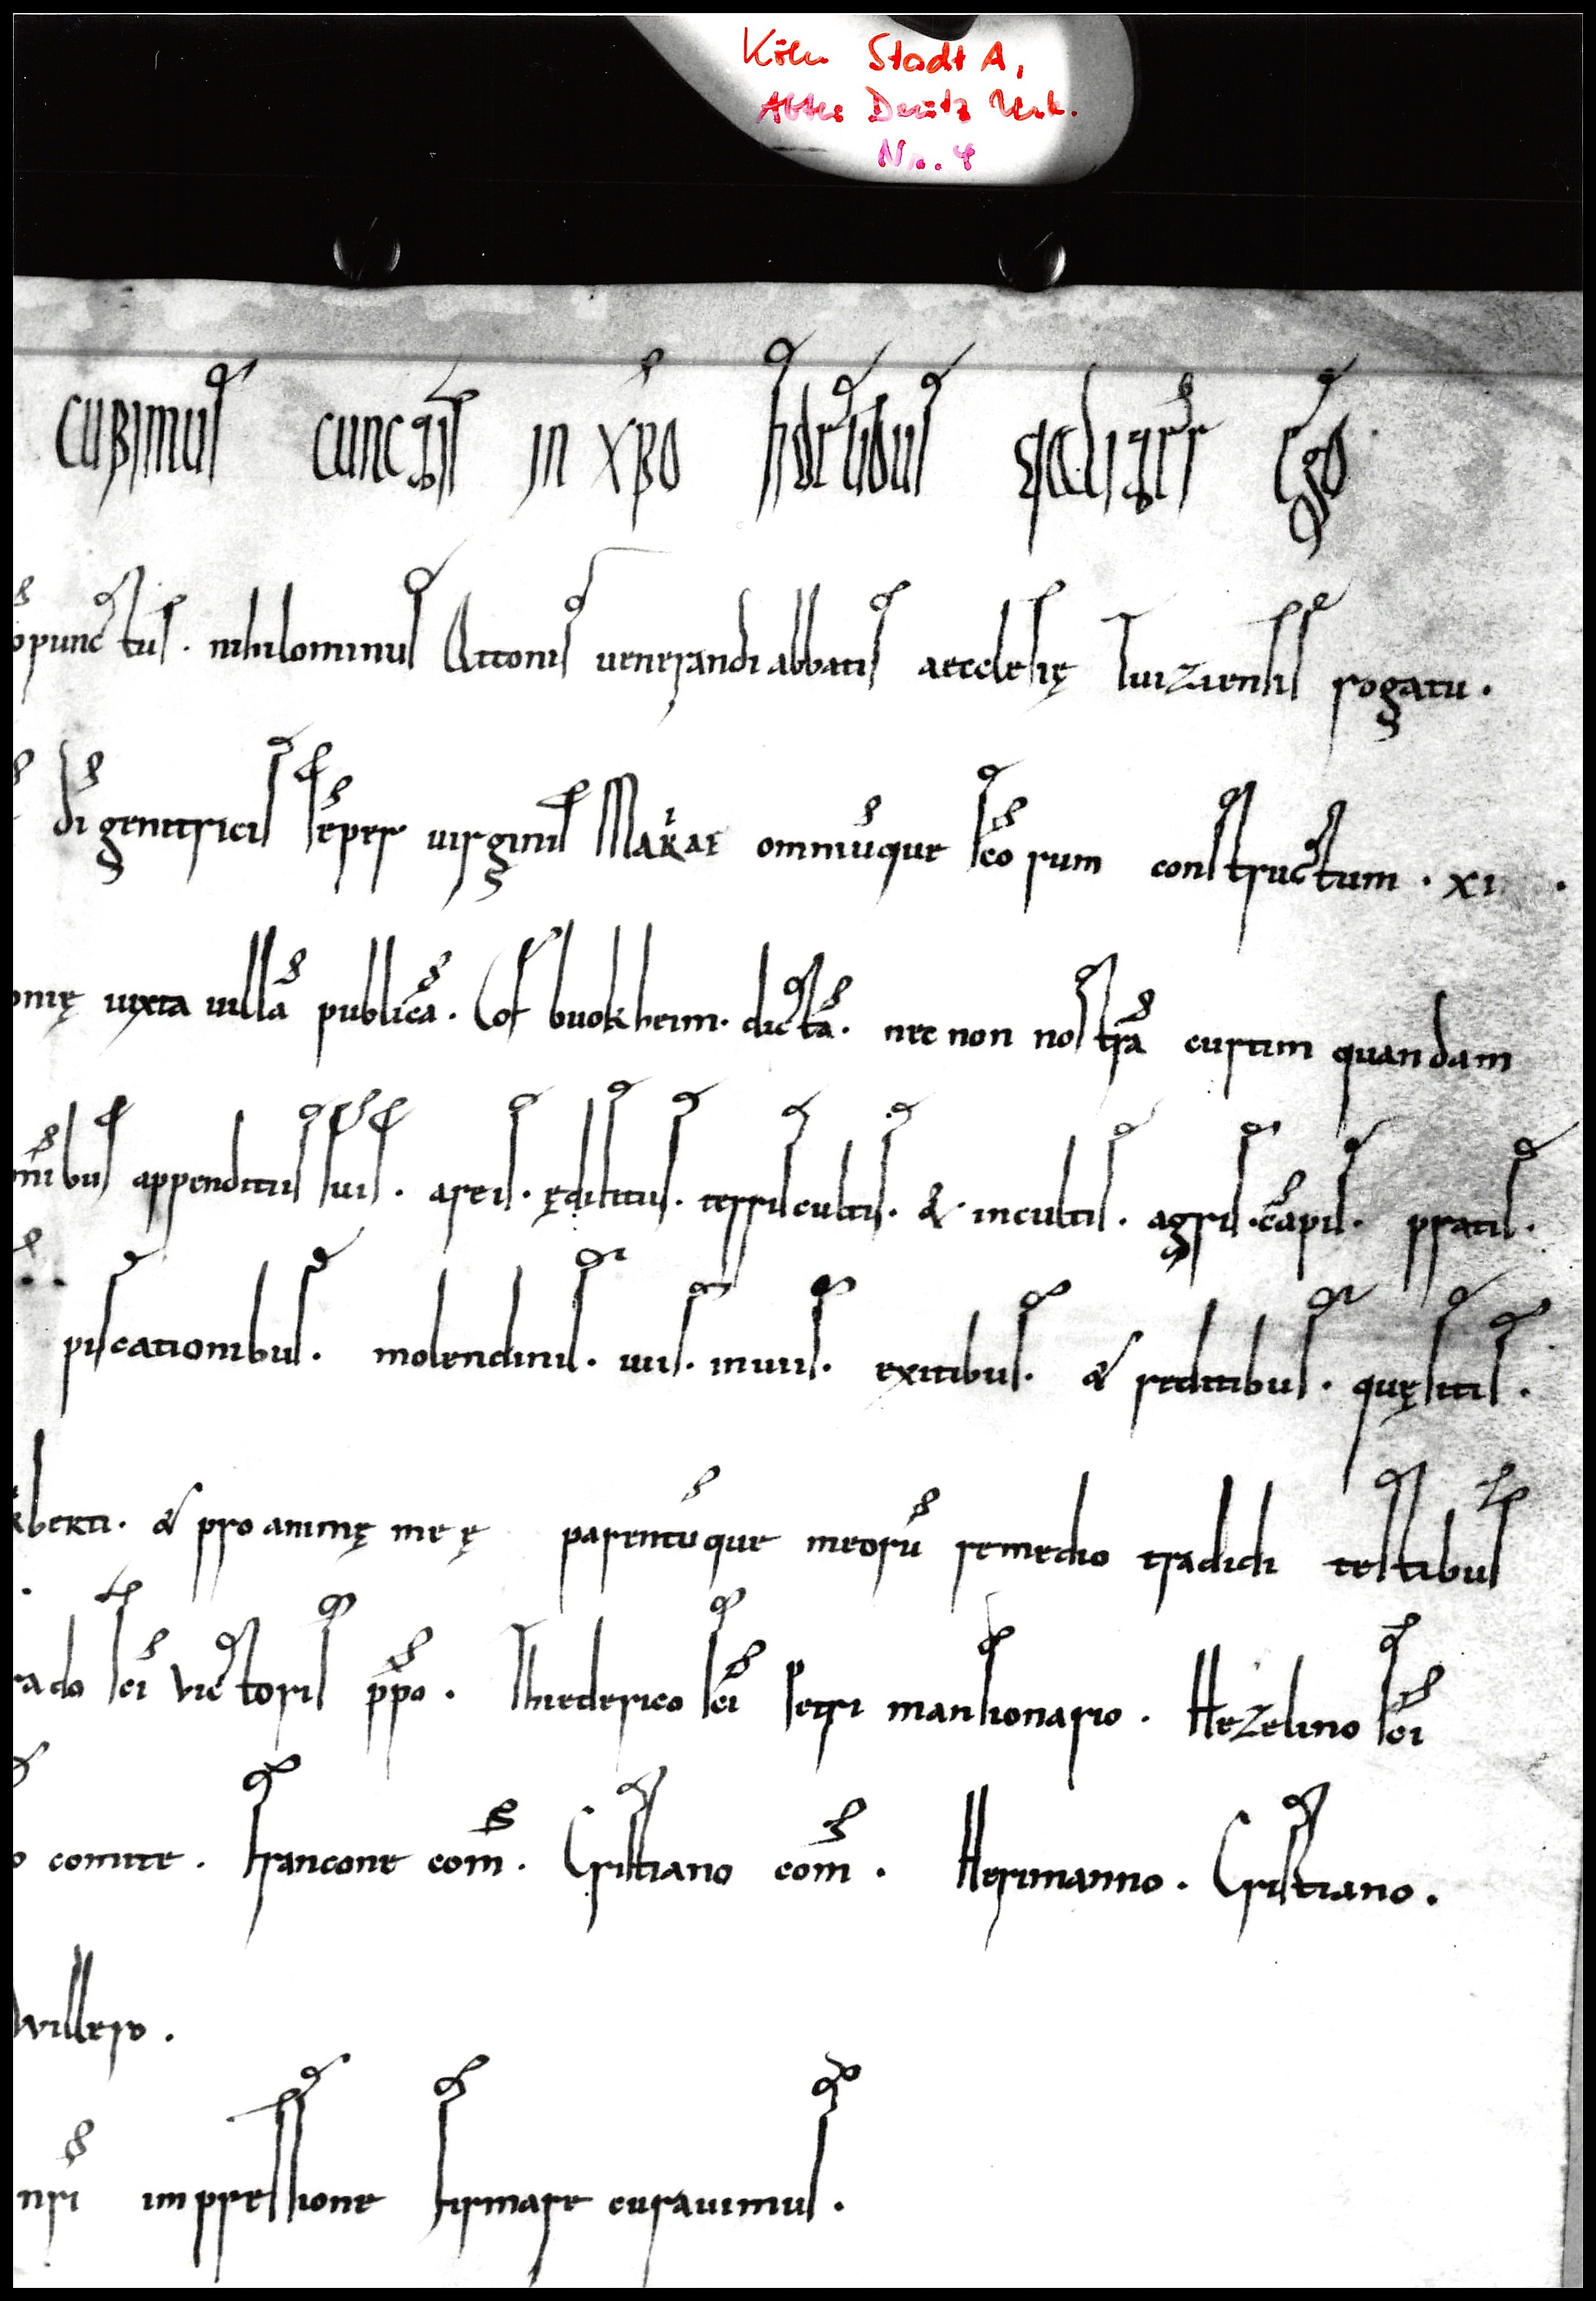 Köln Stadt A,
Abtei Deutz Urk.
Nr. 4
cupimus cunctis in xpo fidelibus qualiter Ego
punctus. nihilominus Attonis venerandi abbatis aecclesię Tuiziensis rogatu.
dī genitricis sēper virginis MARIAE omniūque scōrum constructum. xi .
onię iuxta villā publicā. Lof buokheim. dictā. nec non nostrā curtim quandam
nibus appenditiis suis. areis. ędificiis. terris cultis. & incultis. agris. cāpis. pratis.
piscationibus. molendinis. viis. inviis. exitibus. & reditibus. quęsitis.
berti. & pro animę meę parentūque meorū remedio tradidi testibus
rado scī victoris ppo. Thiederico scī Petri mansionario. Hezelino scī
o comite. Francone com̄. Cristiano com̄. Herimanno. Cristiano.
willero.
nri impressione firmare curavimus.